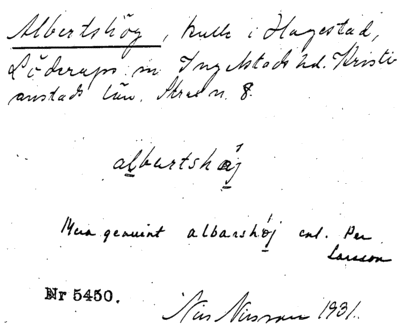 Albertshög, kulle i Hagestad,
Löderups sn Ingelstads hd. Kristi
anstads län. Skrae n. 8.
albertshǫ́j
Mera genuint albarshǫ́j enl. Per
Larsson
Nr 5450.
Nils Nilsson 1931.